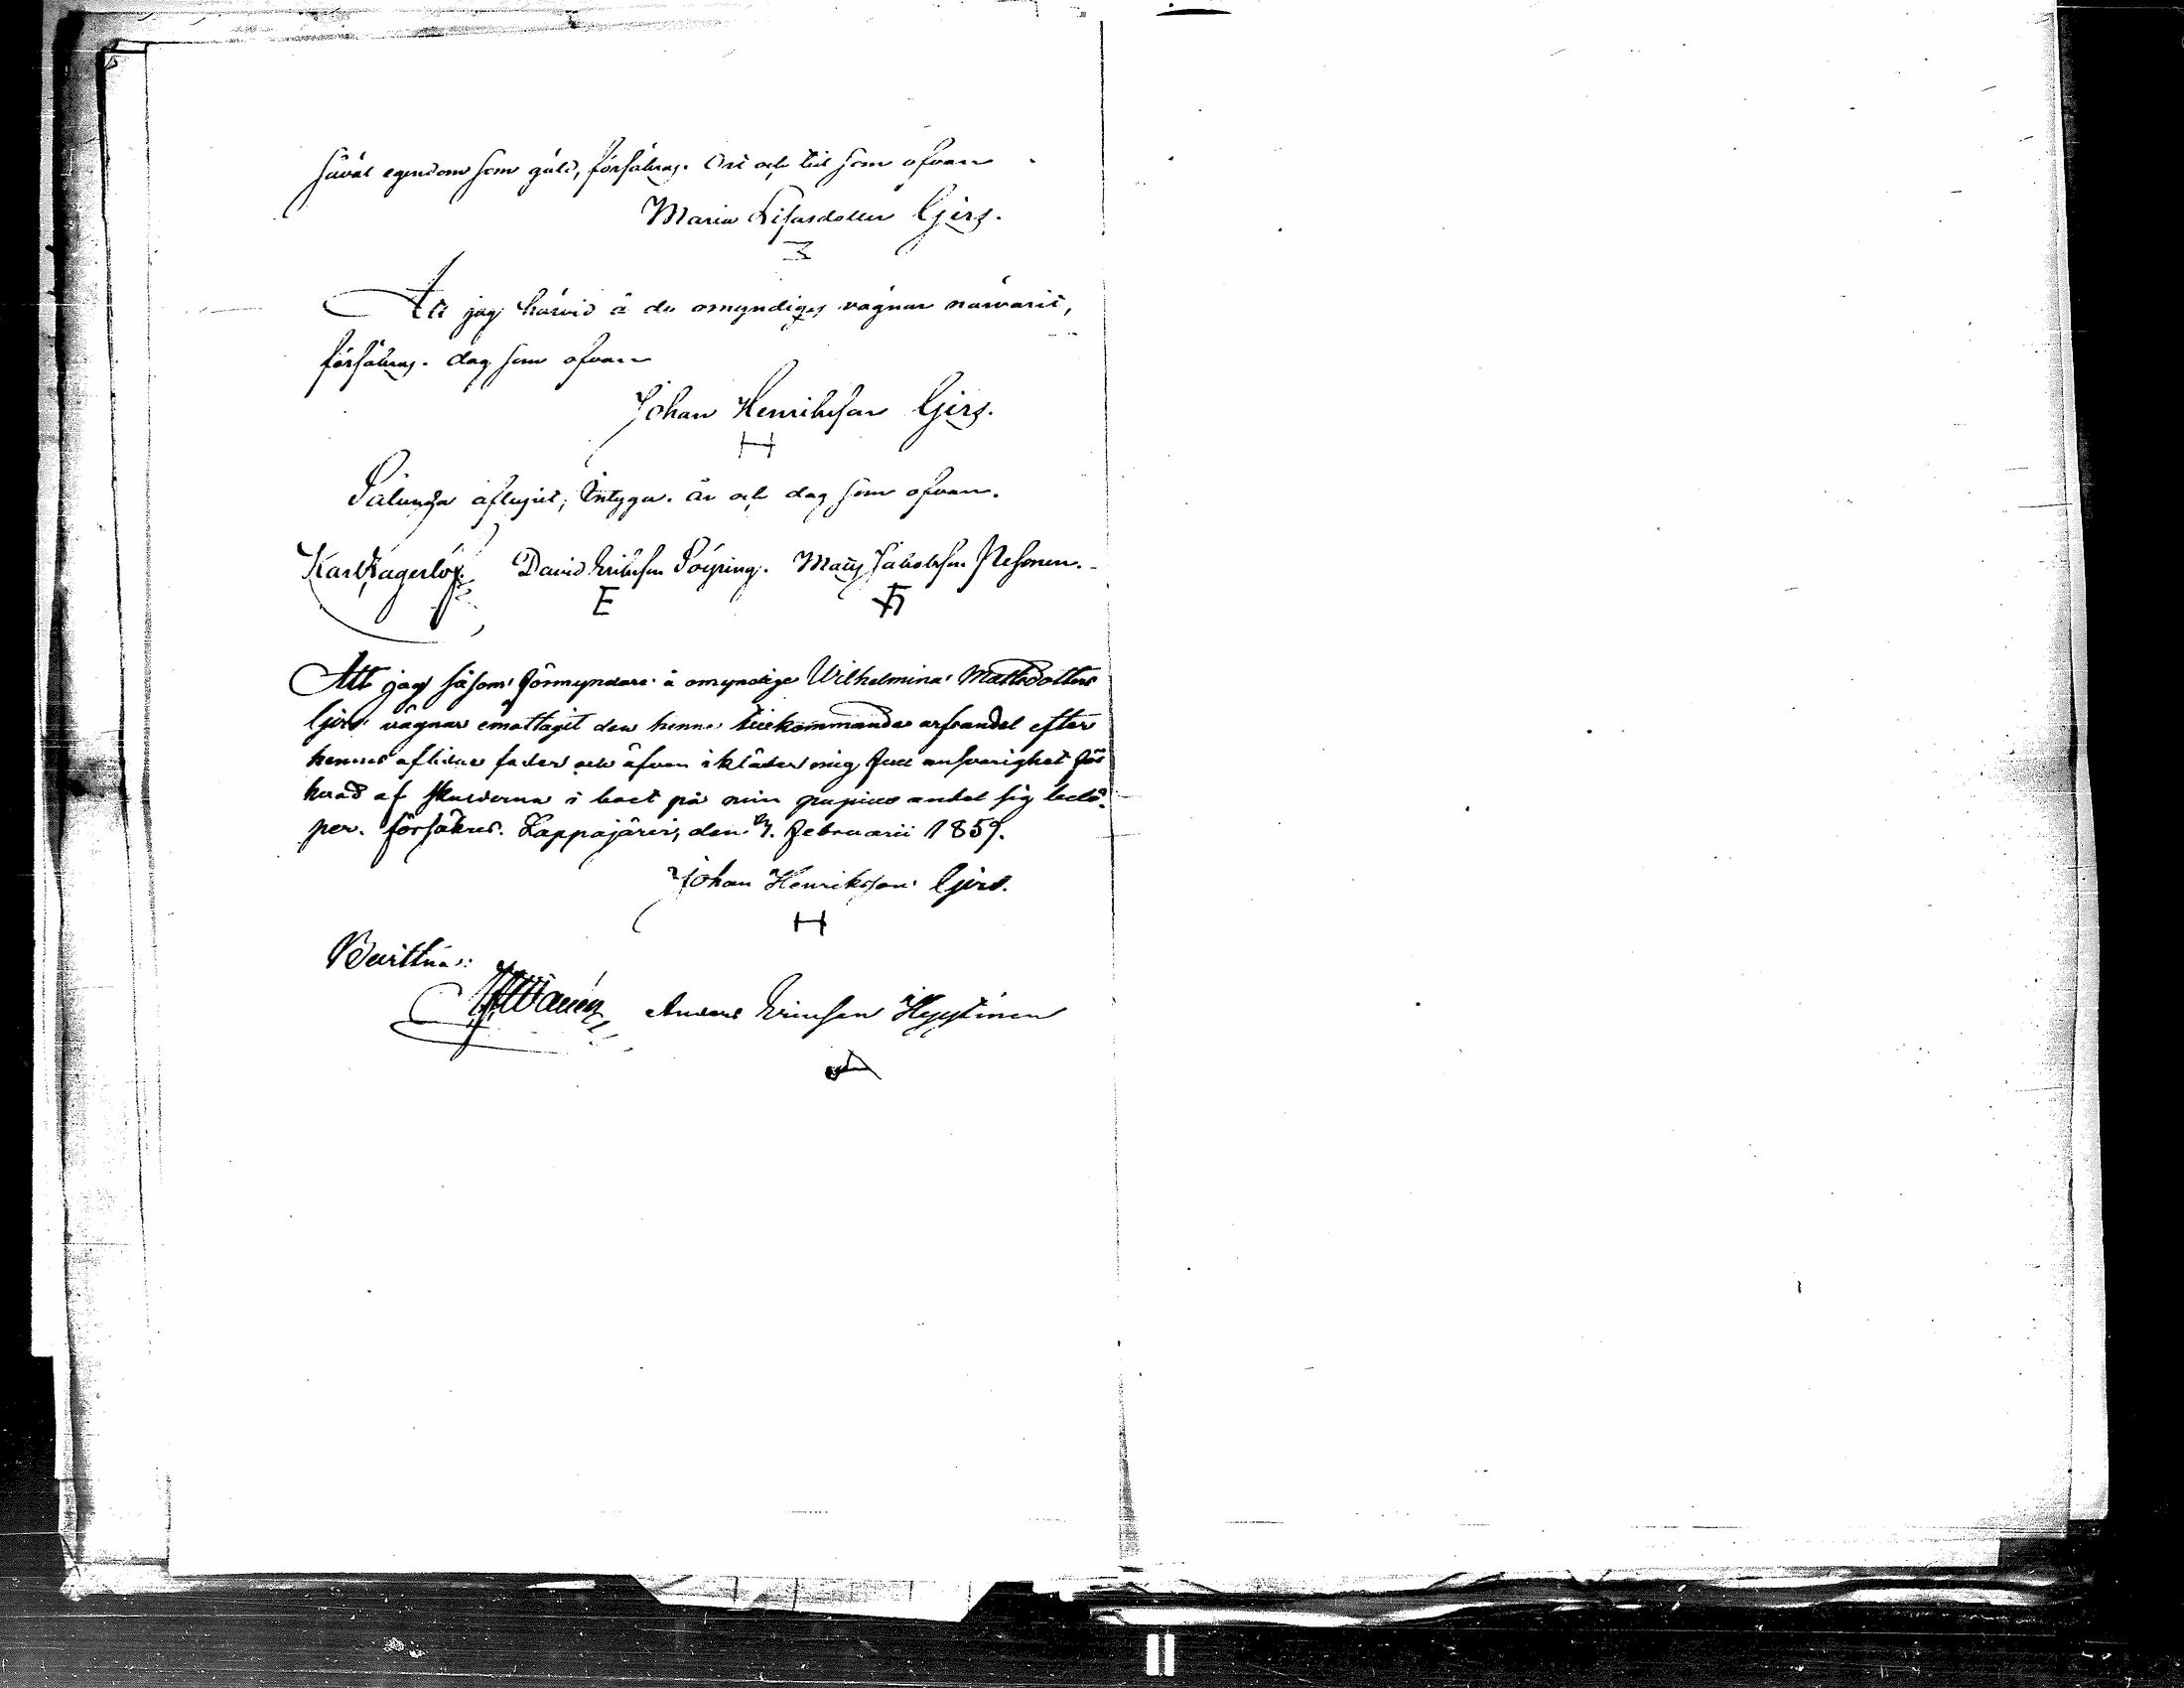 såväl egendom som gäld, försäkras. Ort och tid som ofvan
Maria Lisasdotter Gjers.
Att jag härvid å de omyndiges vägnar närvarit,
försäkras. dag som ofvan
Johan Henriksson Gjers.
H
Sålunda aflupit, intyga. år och dag som ofvan.
Karl Lagerlöf. David Eriksson Söyring. Matts Jakobsson Nesonen.
E
Att jag såsom förmyndare å omyndige Wilhelmina Mattsdotter
Gjers vägnar emottagit den henne tillkommande arfsandel efter
hennes aflidne fader och äfven ikläder mig full ansvarighet för
hvad af skulderna i boet på min pupills andel sig belö-
per. försäkras. Lappajärvi, den Februarii 1859.
Johan Henriksson Gjers.
H
Bevittna:
Anders Ericsson Hyytinen